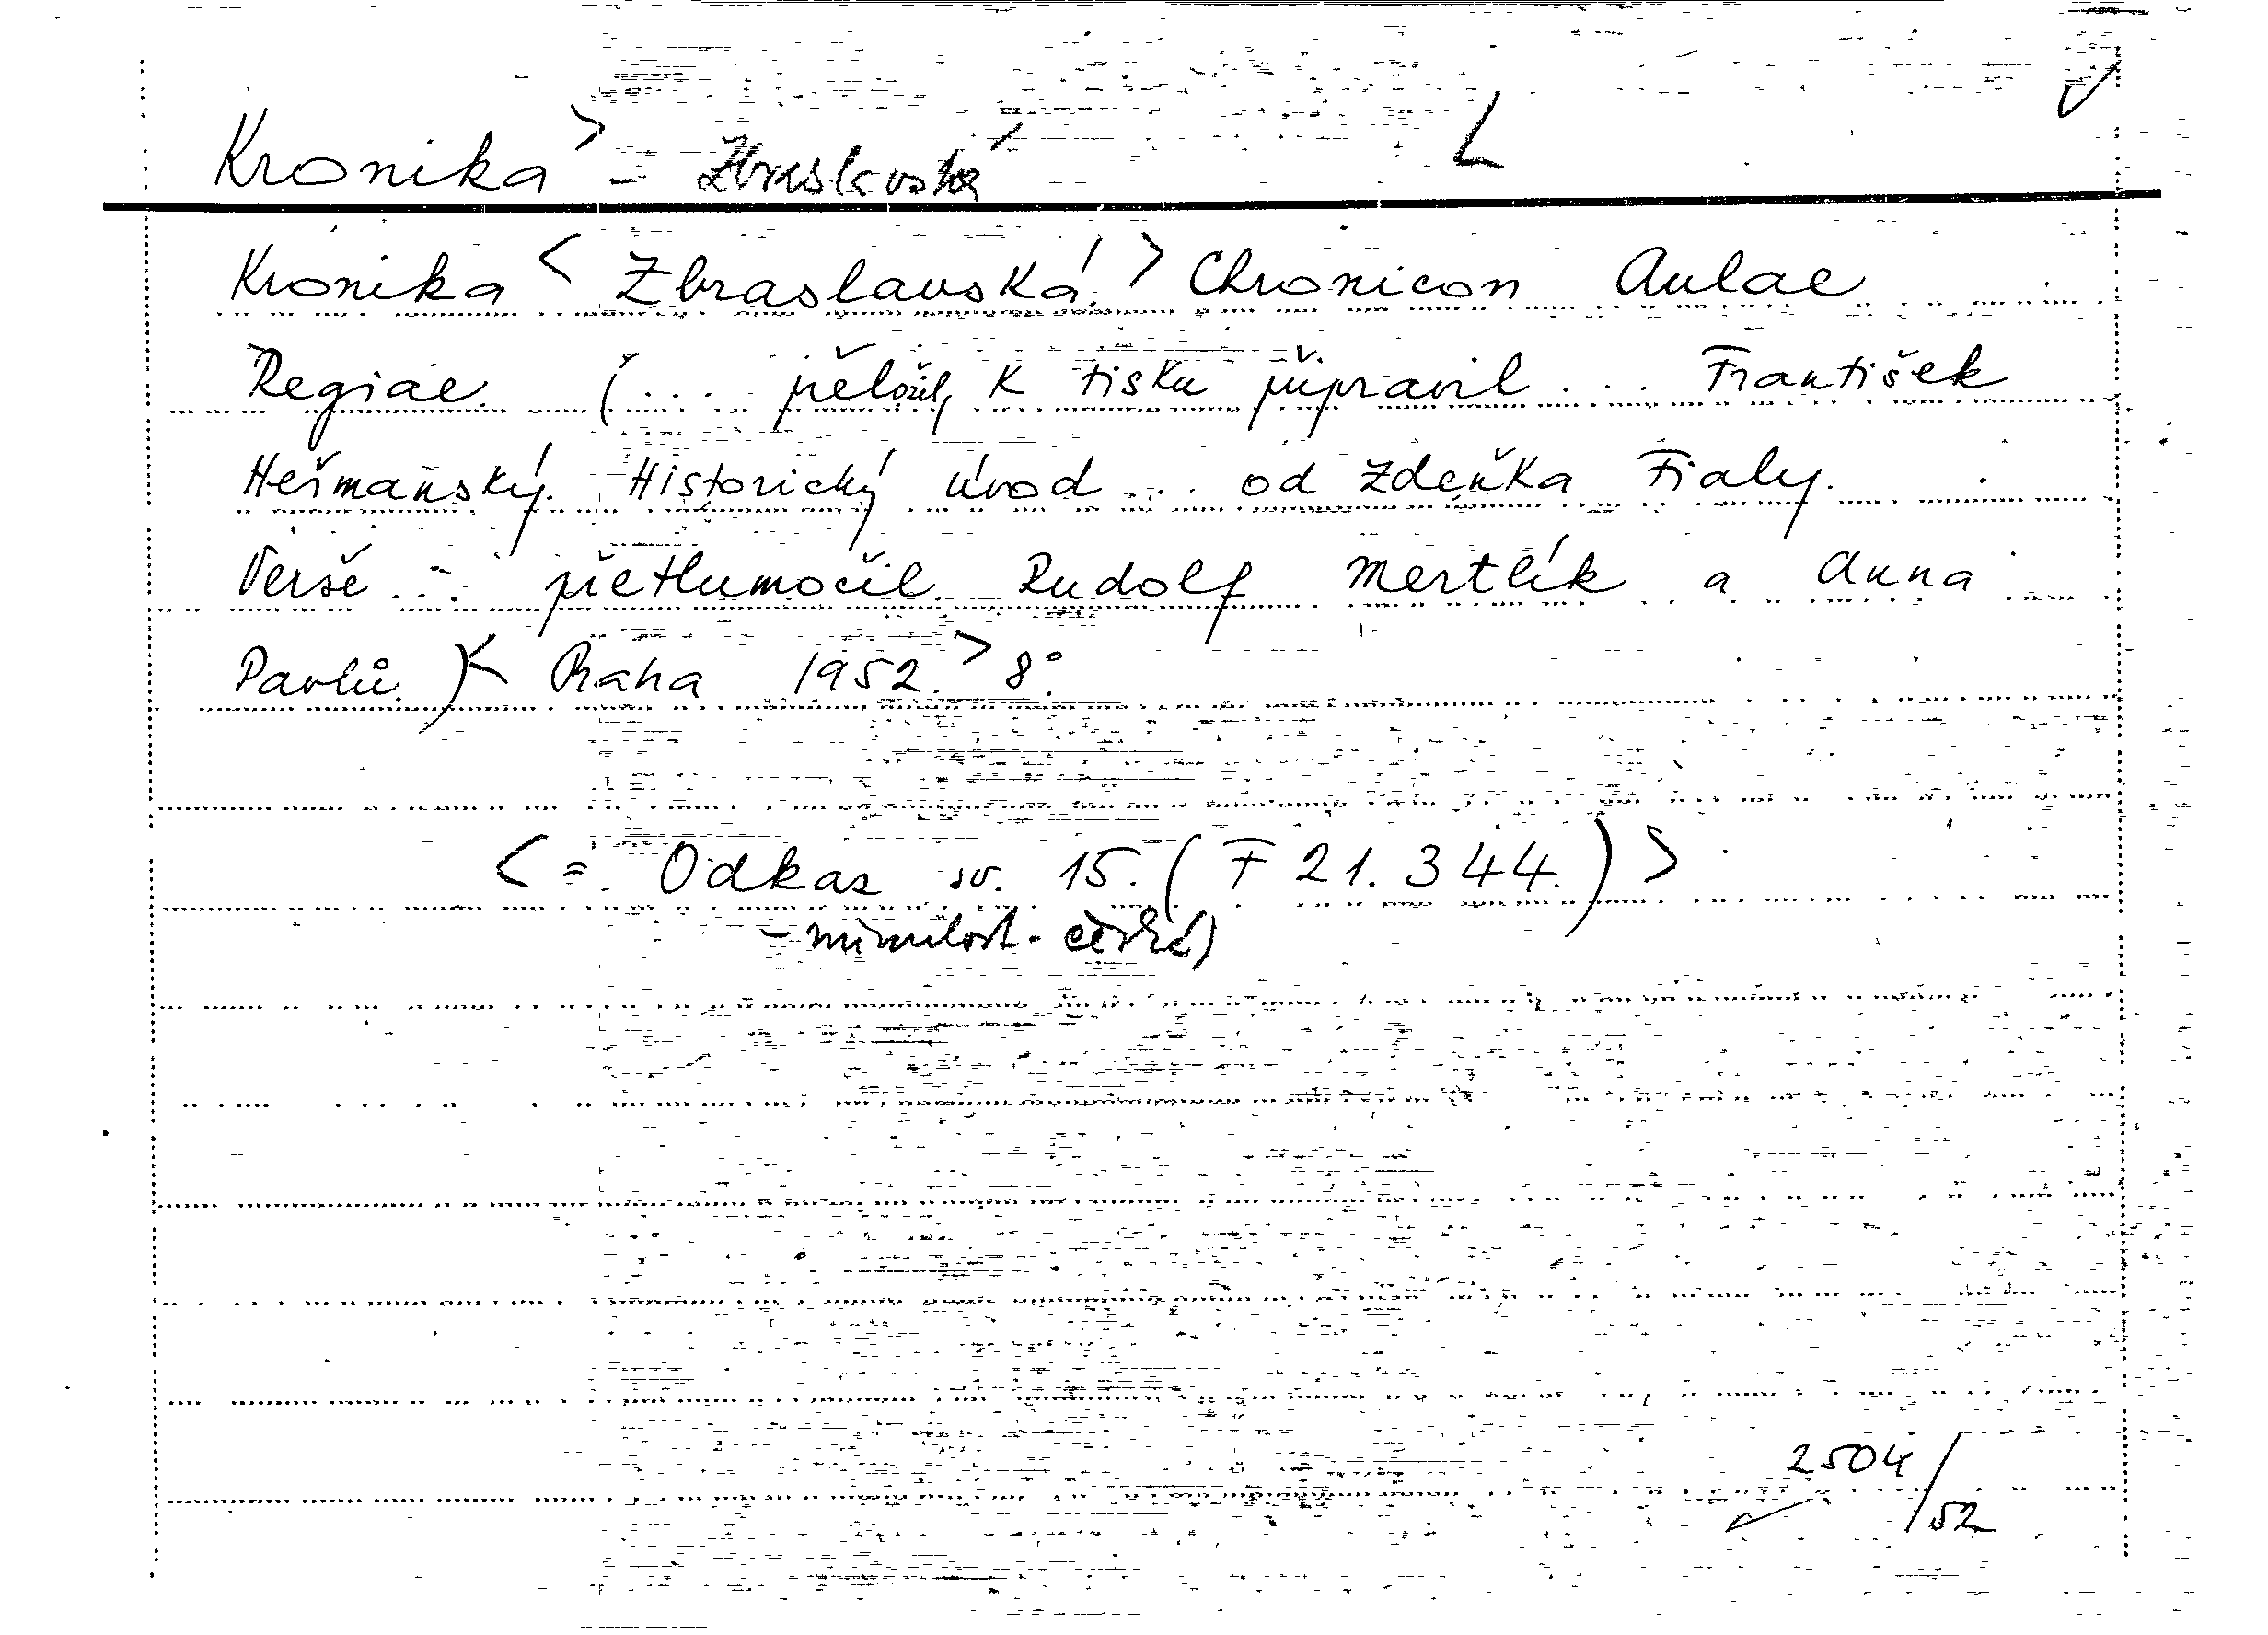 Kronika > - Zbraslavská L
Kronika < Zbraslavská. > Chronicon Aulae
Regiae. (... přeložil, k tisku připravil ... František
Heřmanský. Historický úvod ... od Zdeňka Fialy.
Verše ... přetlumočil Rudolf Mertlík a Anna
Pavlů.) < Praha 1952. > 8°.
< = Odkaz sv. 15. (F 21.344.) >
2504/52